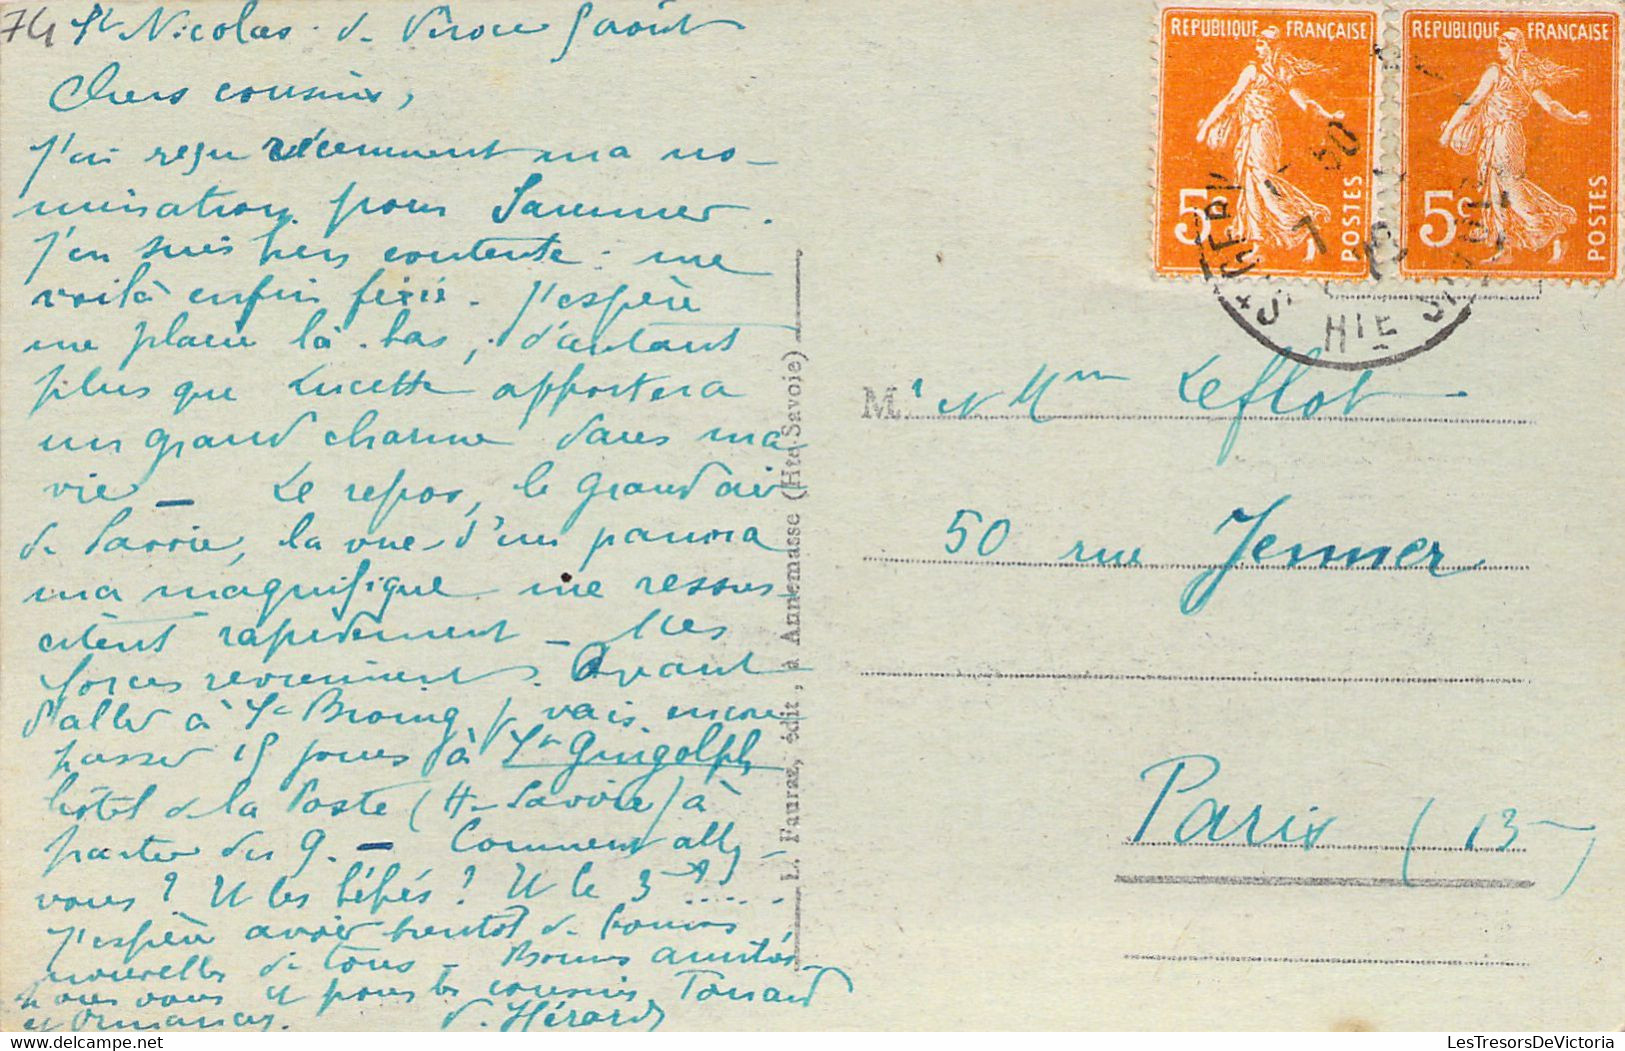 74 St Nicolas de Véroce 5 août
Chers cousins,
J'ai reçu récemment ma no-
mination pour Saumur.
J'en suis très contente : me
voilà enfin fixée. J'espère
me plaire là-bas, d'autant
plus que Lucette apportera
un grand charme dans ma
vie — Le repos, le grand air
de Savoie, la vue d'un panora
ma magnifique me ressus
citent rapidement — Mes
forces reviennent. Avant
d'aller à St Broing je vais encore
passer 15 jours à St Gingolph
hôtel de la Poste (Hte Savoie) à
partir du 9. — Comment allez-
vous ? Et les bébés ? Et le 3e .....
J'espère avoir bientôt de bonnes
nouvelles de tous — Bonnes amitiés
pour vous et pour les cousins
et
Hérard
L. Fauraz, édit., à Annemasse (Hte-Savoie)
REPUBLIQUE FRANÇAISE
5c POSTES
REPUBLIQUE FRANÇAISE
5c POSTES
HTE
M. et Mme Leflot
50 rue Jenner
Paris (13e)
LesTresorsDeVictoria